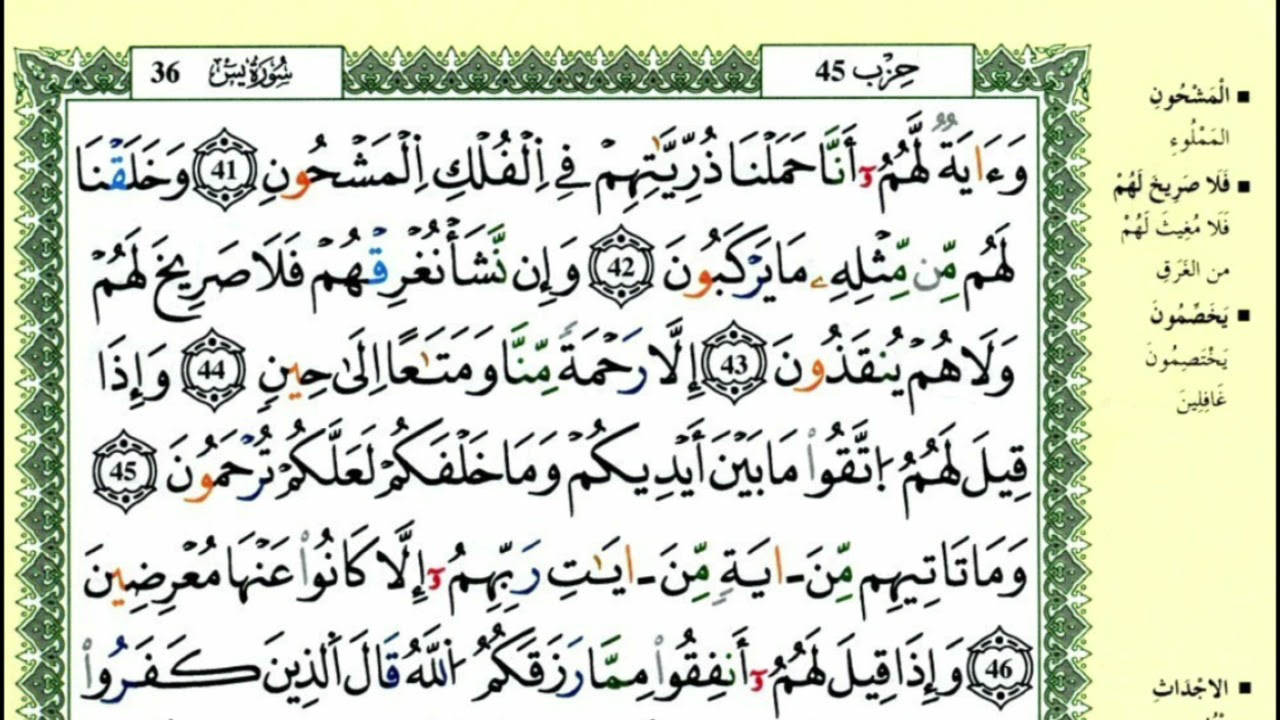 حِزْب 45
سُورَةُ يسٓ 36
وَءَايَةٌ لَّهُمُۥٓ أَنَّا حَمَلْنَا ذُرِّيَّٰتِهِمْ فِے اِ۬لْفُلْكِ اِ۬لْمَشْحُونِ 41 وَخَلَقْنَا
لَهُم مِّن مِّثْلِهِۦ مَا يَرْكَبُونَ 42 وَإِن نَّشَأْ نُغْرِقْهُمْ فَلَا صَرِيخَ لَهُمْ
وَلَا هُمْ يُنقَذُونَ 43 إِلَّا رَحْمَةً مِّنَّا وَمَتَٰعًا اِلَىٰ حِينٍ 44 وَإِذَا
قِيلَ لَهُمُ اُ۪تَّقُوا۟ مَا بَيْنَ أَيْدِيكُمْ وَمَا خَلْفَكُمْ لَعَلَّكُمْ تُرْحَمُونَ 45
وَمَا تَاتِيهِم مِّنَ ـ ايَةٍ مِّنَ ـ ايَٰتِ رَبِّهِمُۥٓ إِلَّا كَانُوا۟ عَنْهَا مُعْرِضِينَ
46 وَإِذَا قِيلَ لَهُمُۥٓ أَنفِقُوا۟ مِمَّا رَزَقَكُمُ اُ۬للَّهُ قَالَ اَ۬لذِينَ كَفَرُوا۟
■ الْمَشْحُونِ
المَمْلُوءِ
■ فَلَا صَرِيخَ لَهُمْ
فَلَا مُغِيثَ لَهُمْ
من الغَرَقِ
■ يَخَصِّمُونَ
يَخْتَصِمُونَ
غَافِلِينَ
■ الاجْدَاثِ